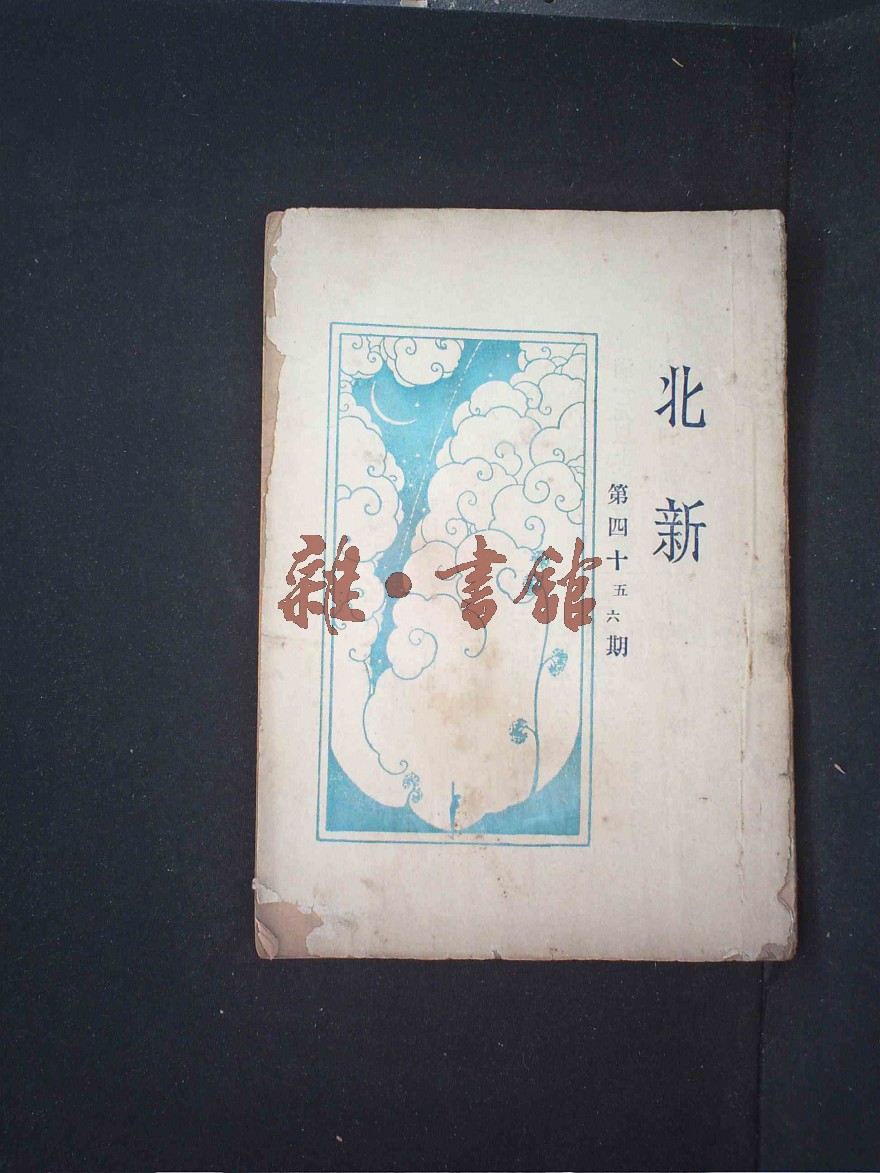 北新
第四十五六期
雜·書館